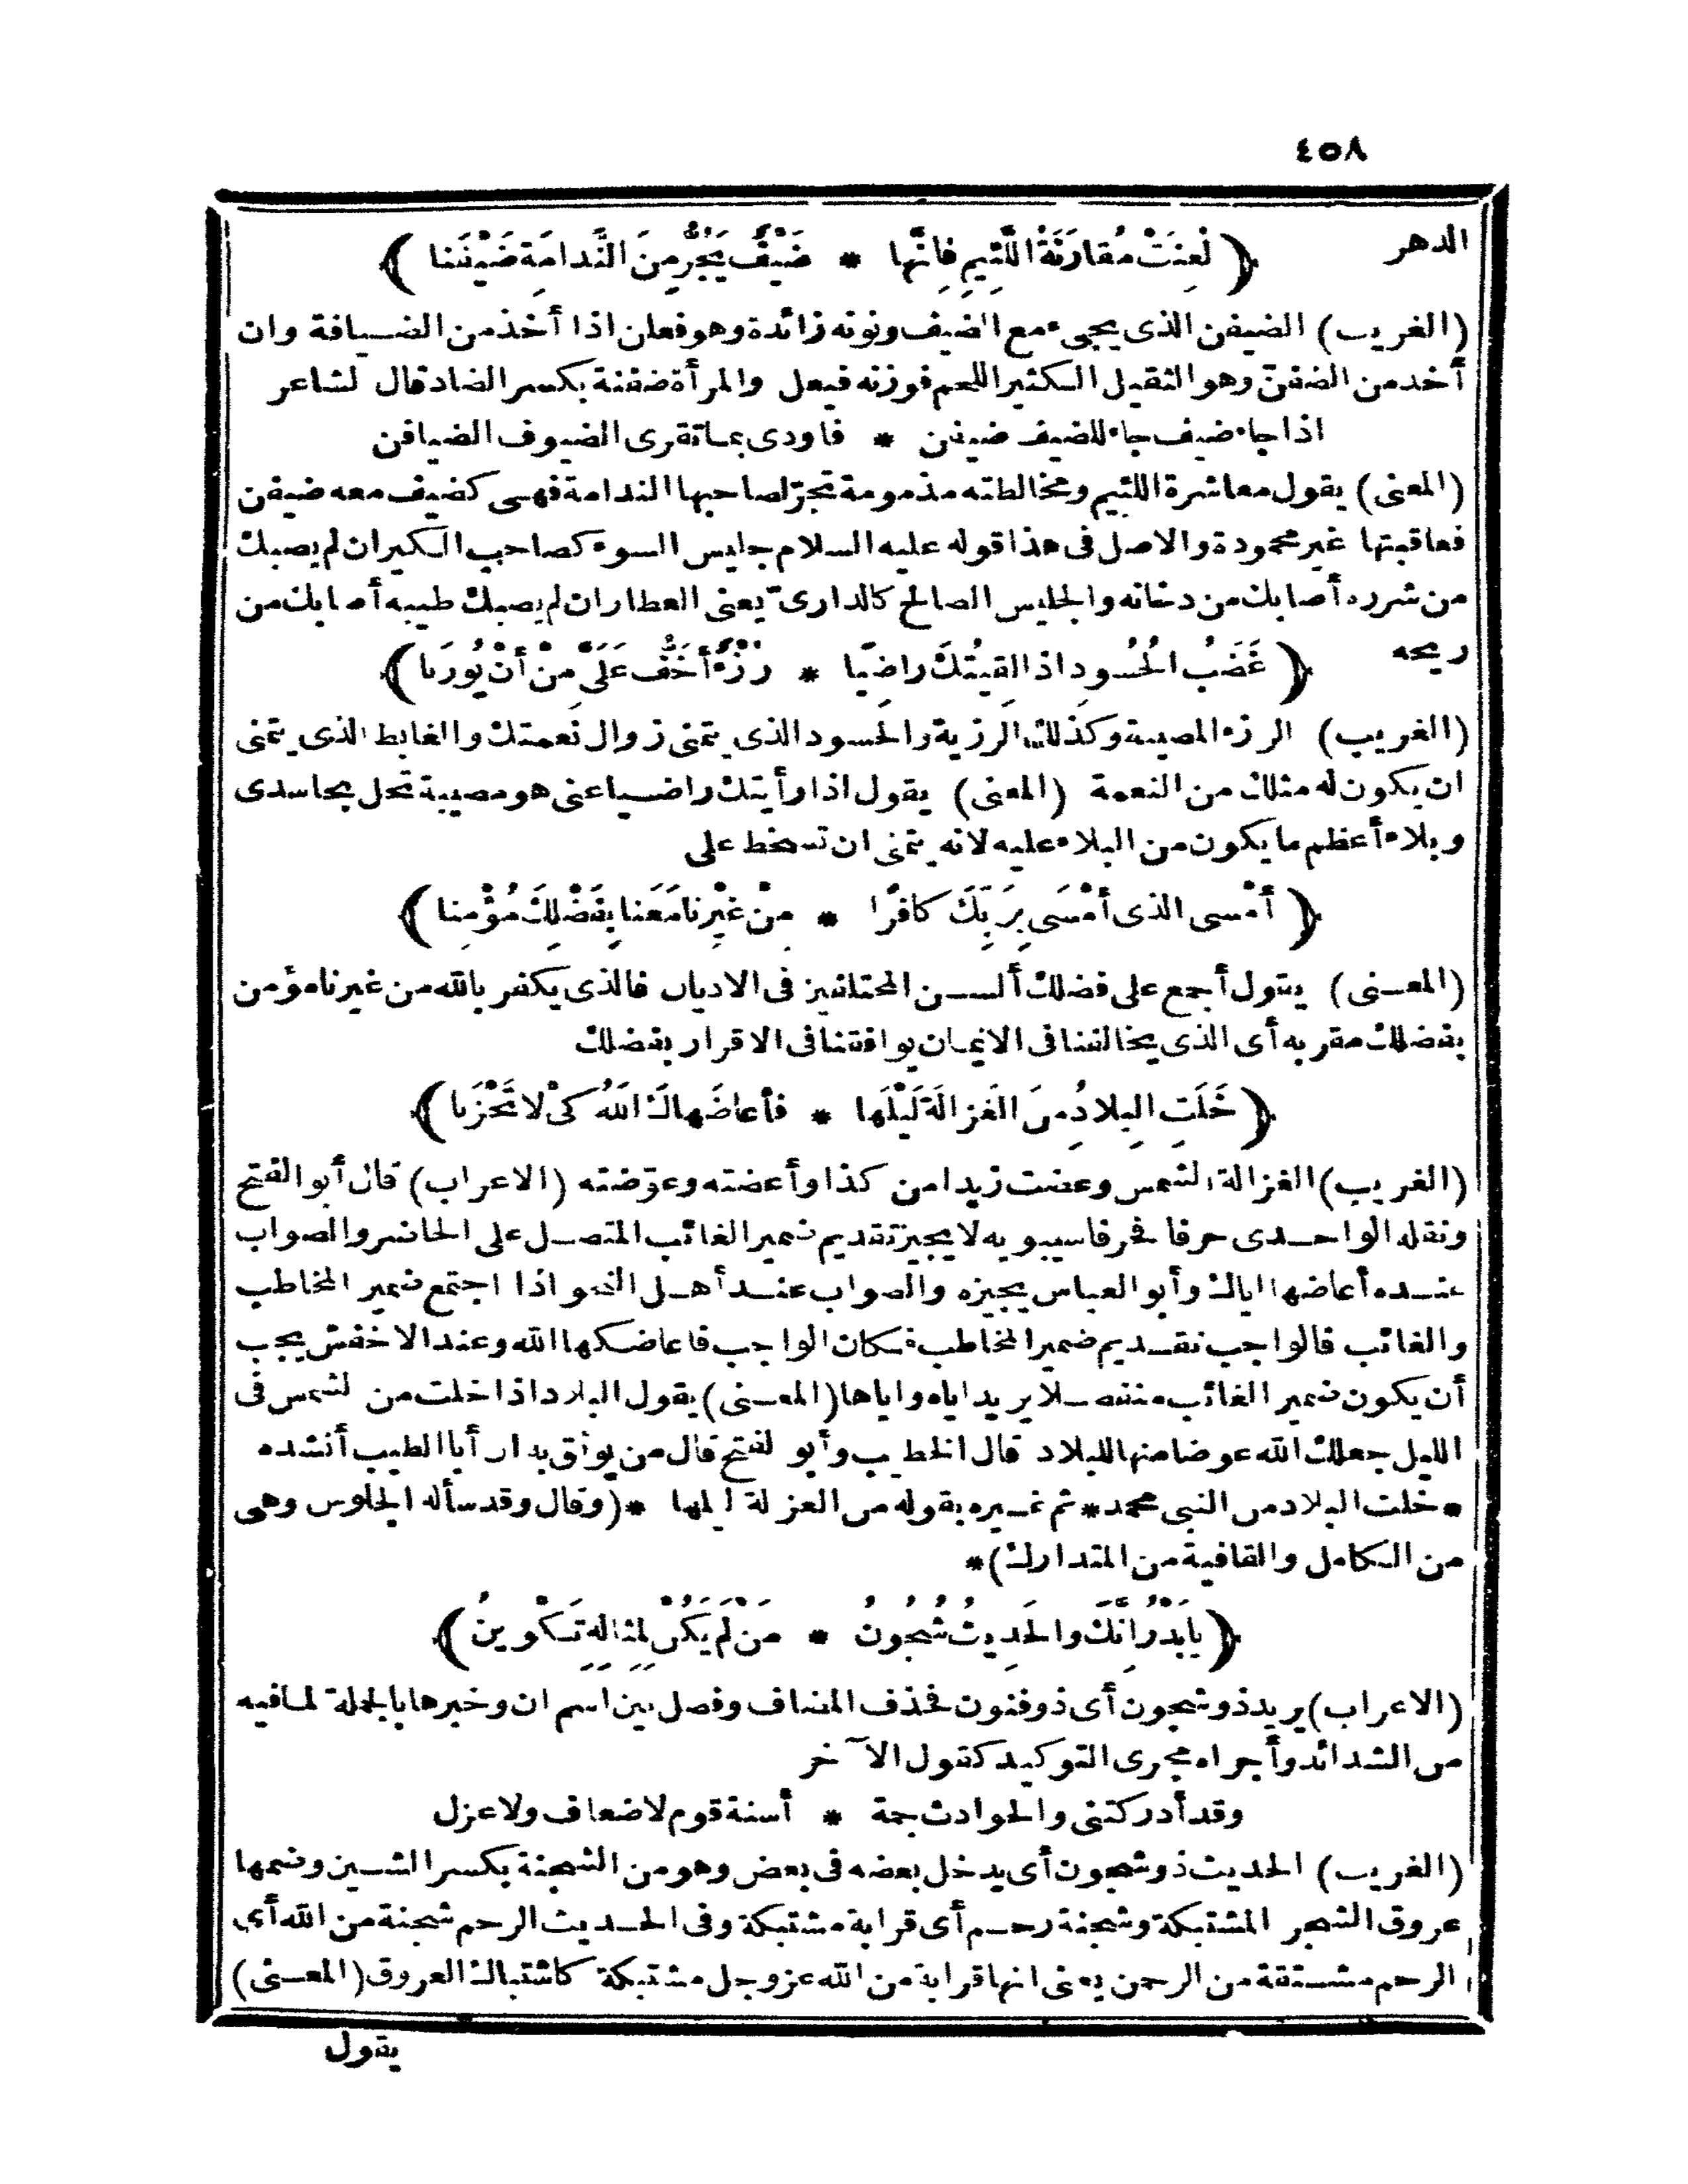 ٤٥٨
الدهر ﴿لُعِنَتْ مُقارَنَةُ اللَّئِيمِ فَإِنَّها * ضَيْفٌ يَجُرُّ مِنَ النَّدامَةِ ضَيْفَنا﴾
(الغريب) الضيفن الذى يجىء مع الضيف ونونه زائدة وهو فعلن اذا أخذ من الضيافة وان
أخذ من الضفن وهو الثقيل الكثير اللحم فوزنه فيعل والمرأة ضفنة بكسر الضاد قال الشاعر
اذا جاء ضيف جاء للضيف ضيفن * فاودى بما تقرى الضيوف الضيافن
(المعنى) يقول معاشرة اللئيم ومخالطته مذمومة تجرّ لصاحبها الندامة فهى كضيف معه ضيفن
فعاقبتها غير محمودة والاصل فى هذا قوله عليه السلام جليس السوء كصاحب الكير ان لم يصبك
من شرره أصابك من دخانه والجليس الصالح كالدارىّ يعنى العطار ان لم يصبك طيبه أصابك من
ريحه ﴿غَضَبُ الحَسُودِ اذا لَقِيتُكَ راضِيًا * رُزْءٌ أَخَفُّ عَلَىَّ مِنْ أَنْ يُوزَنا﴾
(الغريب) الرزء المصيبة وكذلك الرزية والحسود الذى يتمنى زوال نعمتك والغابط الذى يتمنى
ان يكون له مثلك من النعمة (المعنى) يقول اذا رأيتك راضيا عنى هو مصيبة تحل بحاسدى
وبلاء أعظم ما يكون من البلاء عليه لانه يتمنى ان تسخط على
﴿أَمْسى الذى أَمْسَى بِرَبِّكَ كافرًا * مِنْ غَيْرِنا مَعَنا بِفَضْلِكَ مُؤْمِنا﴾
(المعنى) يقول أجمع على فضلك ألسن المختلفين فى الاديان فالذى يكفر بالله من غيرنا مؤمن
بفضلك مقر به أى الذى يخالفنا فى الايمان يوافقنا فى الاقرار بفضلك
﴿خَلَتِ البِلادُ مِنَ الغَزالَةِ لَيْلَها * فأعاضَهاكَ اللهُ كَىْ لا تَحْزَنا﴾
(الغريب) الغزالة الشمس وعضت زيدا من كذا وأعضته وعوّضته (الاعراب) قال أبو الفتح
ونقله الواحدى حرفا فحرفا سيبويه لا يجيز تقديم ضمير الغائب المتصل على الحاضر والصواب
عنده أعاضها اياك وأبو العباس يجيزه والصواب عند أهل النحو اذا اجتمع ضمير المخاطب
والغائب فالواجب تقديم ضمير المخاطب فكان الواجب فاعاضكها الله وعند الاخفش يجب
أن يكون ضمير الغائب منفصلا يريد اياه واياها (المعنى) يقول البلاد اذا خلت من الشمس فى
الليل جعلك الله عوضا منها للبلاد قال الخطيب وأبو الفتح قال من يوثق به ان أبا الطيب أنشده
* خلت البلاد من النبى محمد * ثم غيره بقوله من الغزالة ليلها *(وقال وقد سأله الجلوس وهى
من الكامل والقافية من المتدارك)*
﴿يا بَدْرُ إنَّكَ والحَدِيثُ شُجُونُ * مَنْ لَمْ يَكُنْ لِمِثالِهِ تَكْوِينُ﴾
(الاعراب) يريد ذو شجون أى ذو فنون فحذف المضاف وفصل بين اسم ان وخبرها بالجملة لما فيه
من الشدائد وأجراه مجرى التوكيد كقول الآخر
وقد أدركتنى والحوادث جمة * أسنة قوم لا ضعاف ولا عزل
(الغريب) الحديث ذو شجون أى يدخل بعضه فى بعض وهو من الشجنة بكسر الشين وضمها
عروق الشجر المشتبكة وشجنة رحم أى قرابة مشتبكة وفى الحديث الرحم شجنة من الله أى
الرحم مشتقة من الرحمن يعنى انها قرابة من الله عز وجل مشتبكة كاشتباك العروق (المعنى)
يقول